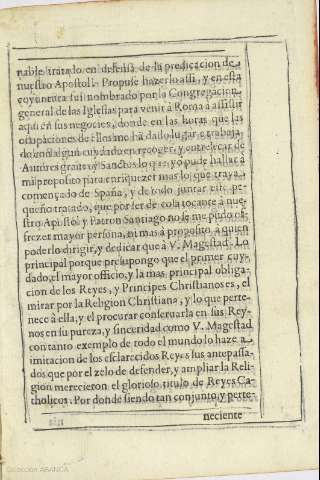 nable tratado en defensa de la predicacion de
nuestro Apostol. Propuse hazerlo assi, y en esta
coyuntura fui nombrado por la Congregacion
general de las Iglesias para venir à Roma à assistir
aqui en sus negocios, donde en las horas que las
ocupaciones de ellos me hã dado lugar e trabaja
do con algun cuydado en recoger, y entresacar de
Autores graues y Sanctos lo que yo pude hallar à
mi proposito para enriquezer mas lo que traya
començado de España, y de todo juntar este pe-
queño tratado, que por ser de cosa tocante à nue-
stro Apostol y Patron Santiago no se me pudo of-
frezer mayor persona, ni mas à proposito à quien
poderlo dirigir, y dedicar que à V. Magestad. Lo
principal porque presupongo que el primer cuy-
dado, el mayor officio, y la mas principal obliga-
cion de los Reyes, y Principes Christianos es, el
mirar por la Religion Christiana, y lo que perte-
nece à ella, y el procurar conseruarla en sus Rey-
nos en su pureza, y sinceridad como V. Magestad
con tanto exemplo de todo el mundo lo haze a
imitacion de los esclarecidos Reyes sus antepassa-
dos que por el zelo de defender, y ampliar la Reli-
gion merecieron el glorioso titulo de Reyes Ca-
tholicos. Por donde siendo tan conjunto, y perte-
neciente
Colección ABANCA